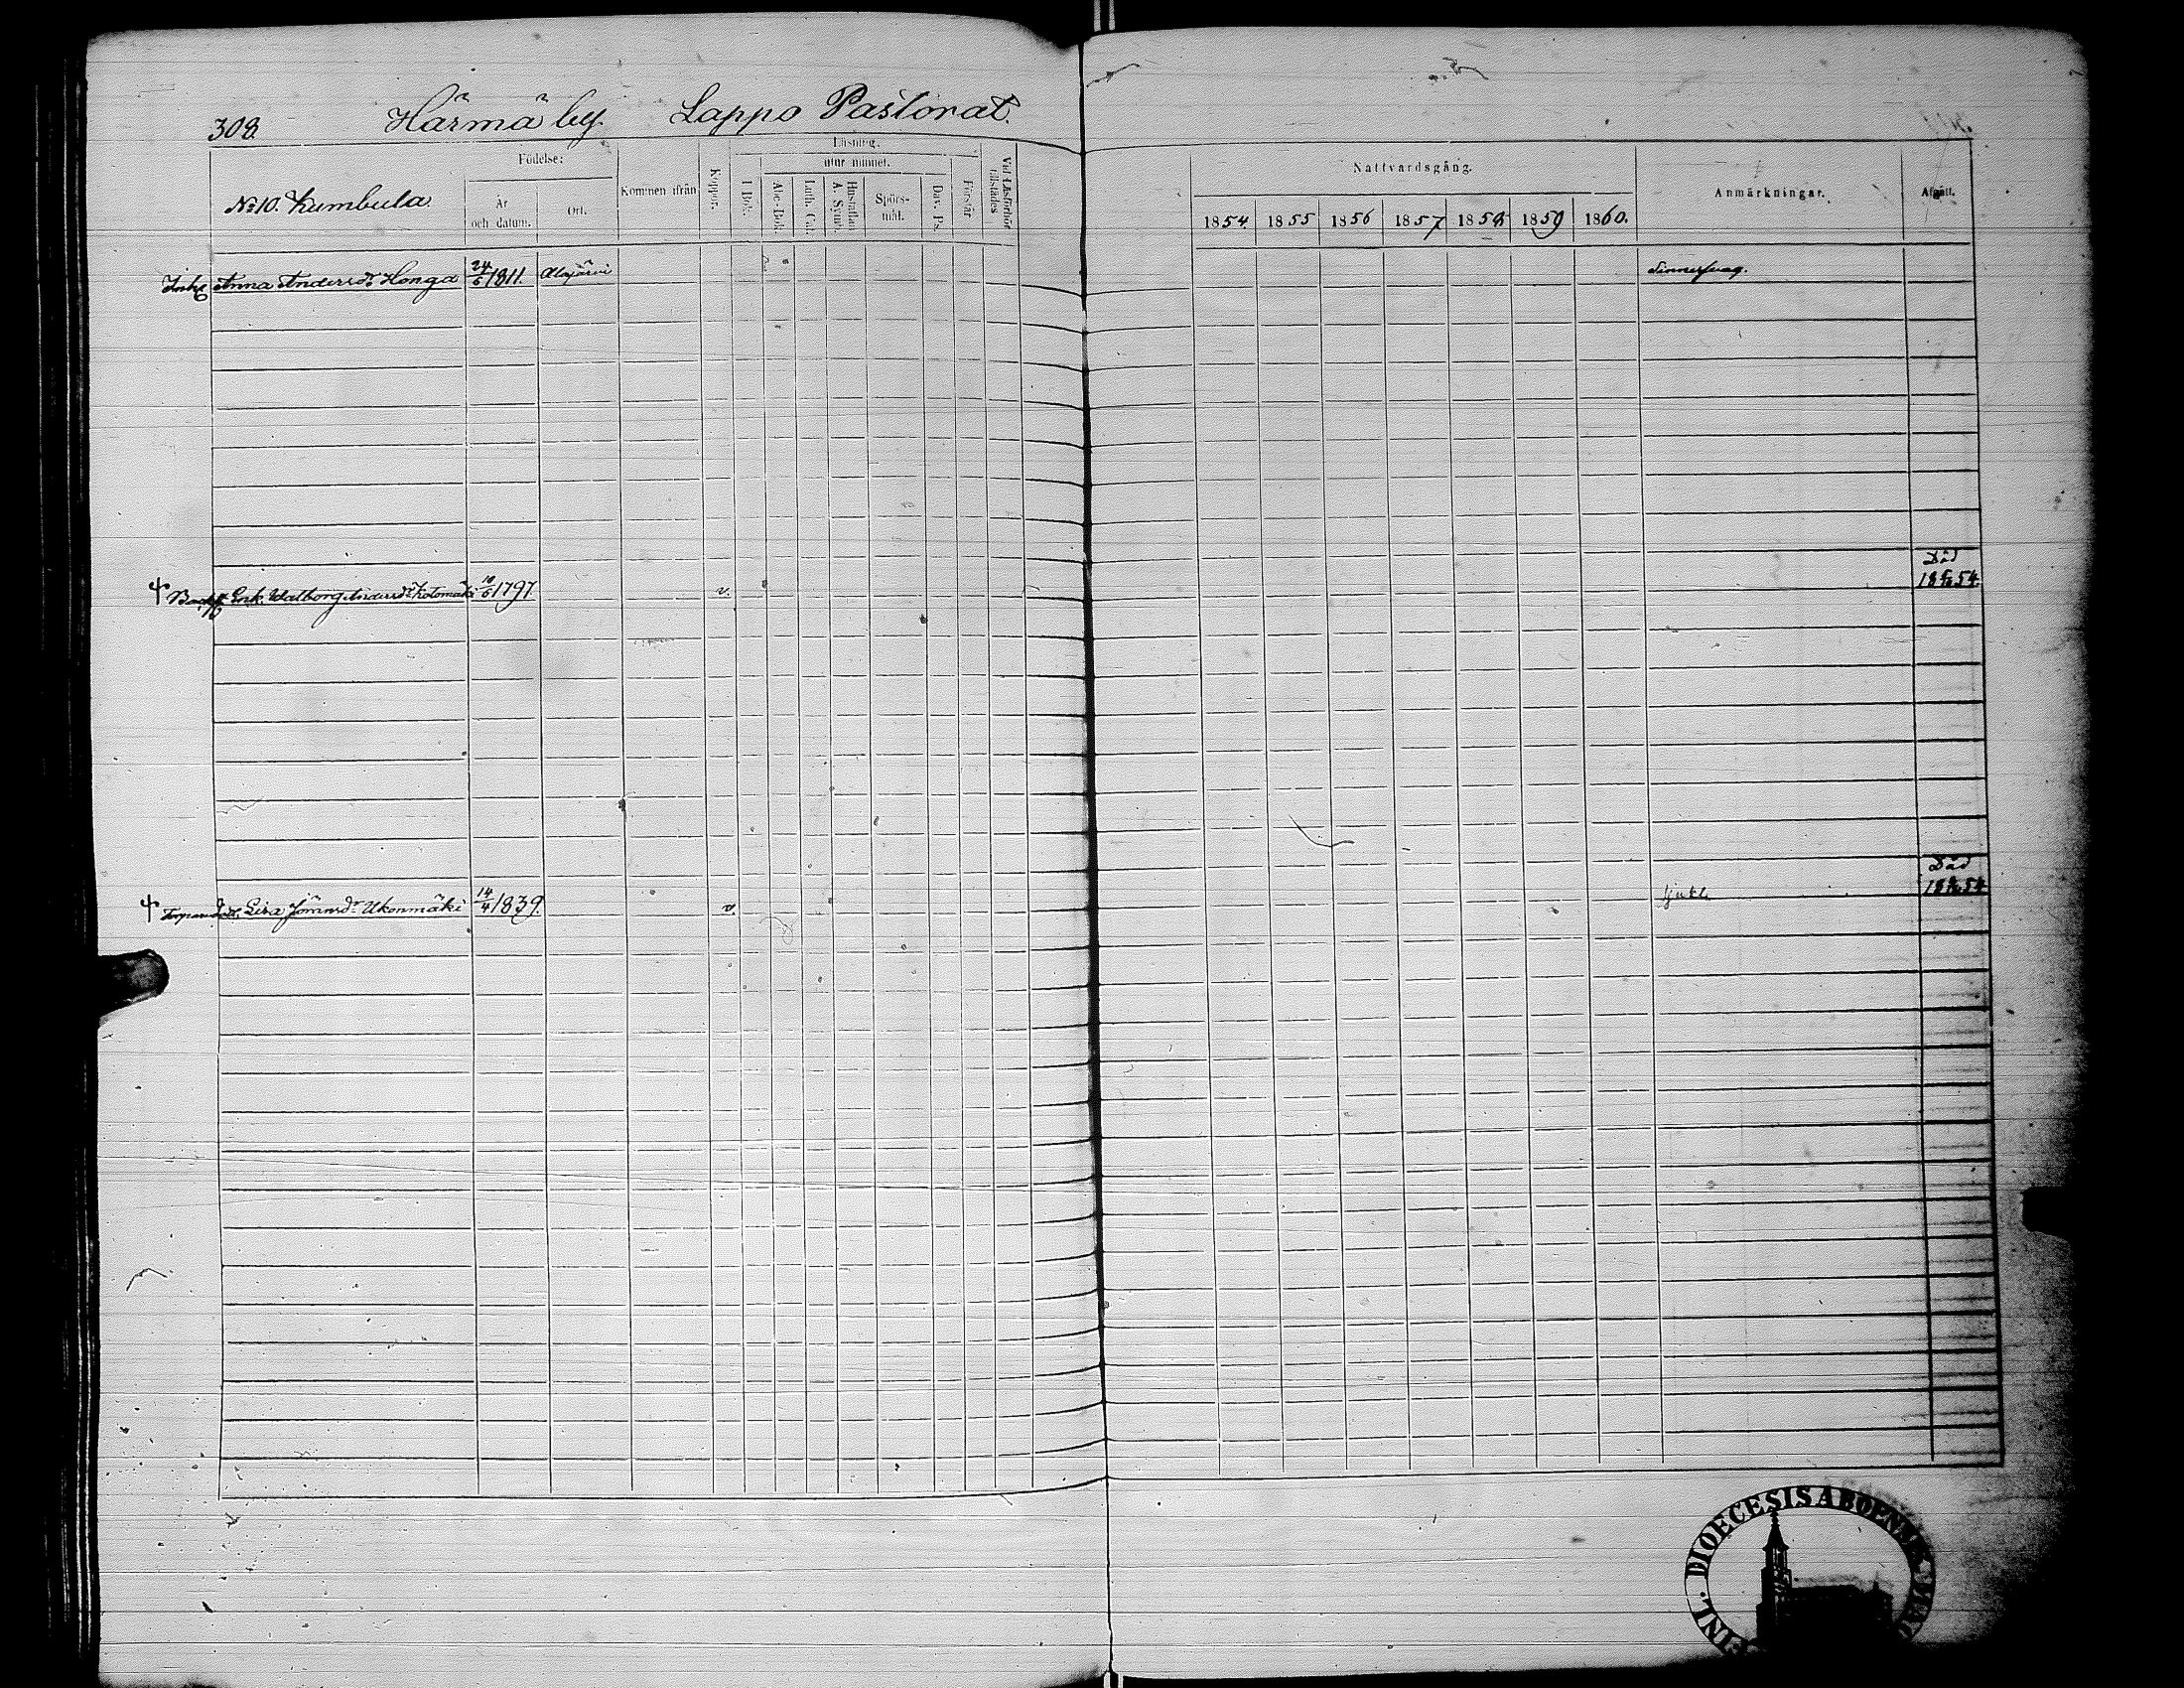 308. Härmä by. Lappo Pastorat.
No 10. Kumbula.
Födelse:
År och datum.
Ort.
Kommen ifrån
Koppor.
Läsning.
I Bok.
utur minnet.
Abc-Bok.
Luth. Cat.
Hustaflan A. Symb.
Spörs-mål.
Dav. Ps.
Förstår
Vid Läsförhör tillstädes
Nattvardsgång.
1854. 1855 1856 1857 1858 1859 1860.
Anmärkningar.
Afgått.
Inhs Anna Andersdr Honga 24/6 1811. Alajärvi
Sinnessvag.
Enk. Walborg Andersdr Kotomäki 10/6 1797. v.
Död
1854
Lisa Jönnsdr Ukonmäki 14/4 1839. v.
Död
1854
DIOECESIS ABOENSIS
FINL.